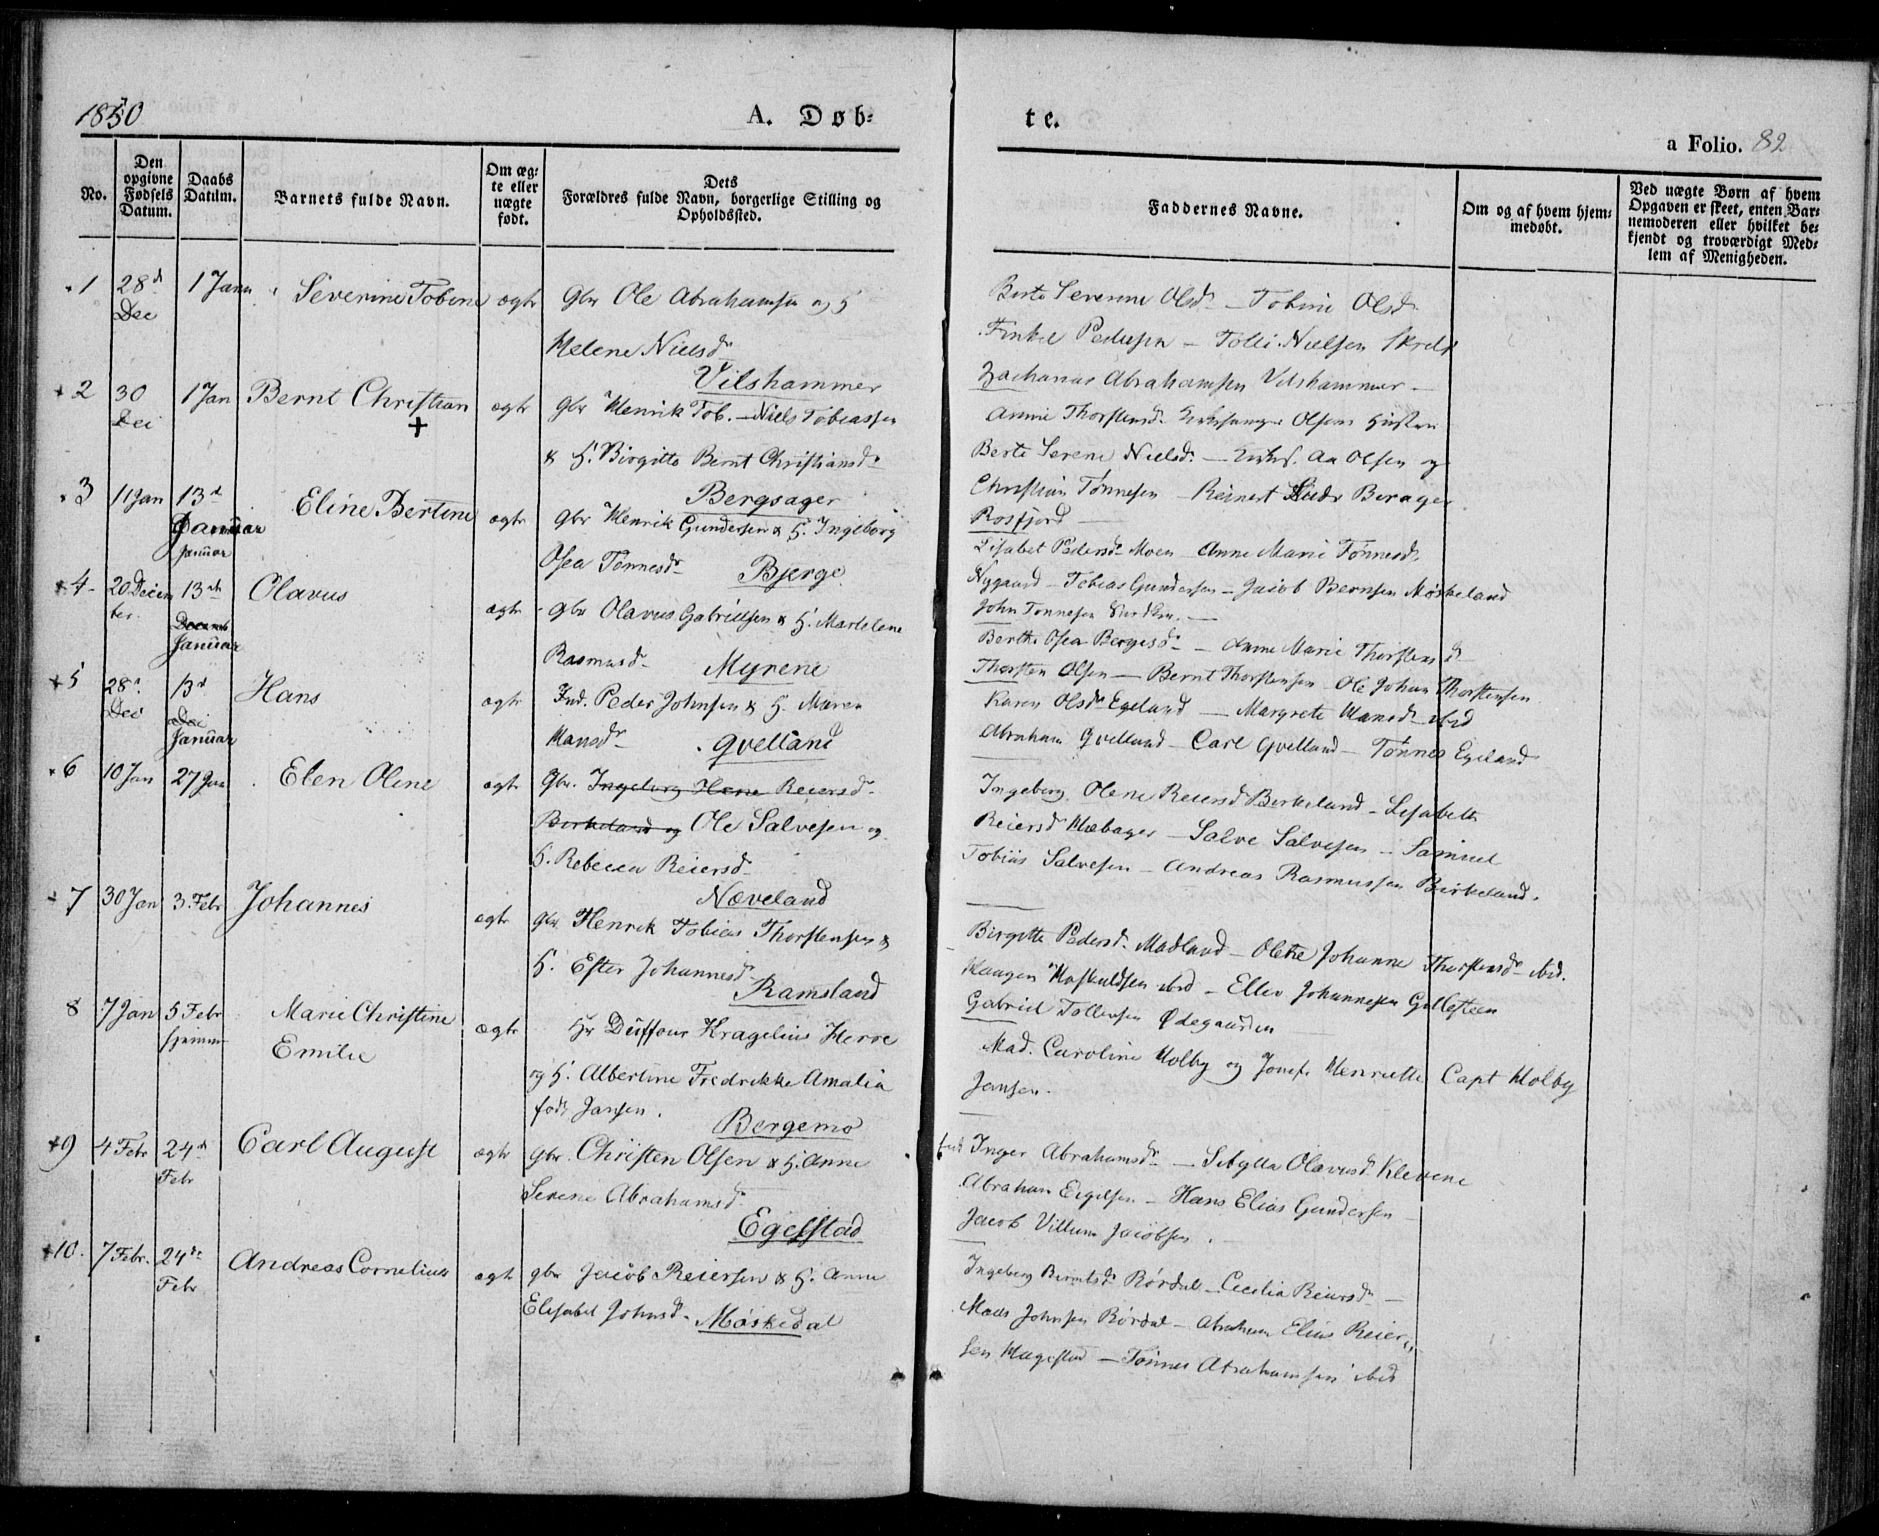 1850
A. Døb-
te.
a Folio. 82
No.
Den opgivne Fødsels Datum.
Daabs Datum.
Barnets fulde Navn.
Om æg-
te eller uægte født.
Dets
Forældres fulde Navn, borgerlige Stilling og
Opholdssted.
Faddernes Navne.
Om og af hvem hjem-
medøbt.
Ved uægte Børn af hvem
Opgaven er skeet, enten Bar-
nemoderen eller hvilket be-
kjendt og troværdigt Med-
lem af Menigheden.
1 28d Dec 1 Jan Severine Tobine ægte Gbr Ole Abrahamsen og H
Helene Nielsdr
Vilshammer
Berte Serenne Olsdr — Tobine Olsd
Pedersen — Tolli Nielsen
Zacharias Abrahamsen Vilshammer —
2 30 Dec 1 Jan Bernt Christian ægte Gbr Henrik Tob. — Niels Tobiassen
& H. Birgitte Bernt Christiansdr
Bergsager
Annie Thorstensd. Olsens Hustru
Berte Serene Nielsd. — Aa Olsen og
Christian Tønnesen — Reinert Berager
Rosfjord —
3 11 Jan 13d Januar Januar Eline Bertine ægte Gbr Henrik Gundersen & H. Ingeborg
Osea Tønnesdr Bjerge
Lisabet Pedersdr Moen — Anne Marie Tønnesd.
Nygaard — Tobias Gundersen — Jacob Bernsen Møskeland
John Tønnesen
4 20 Decem
ber 13de Januar Olavus ægte Gbr Olavus Gabrielsen & H. Martelene
Rasmusdr Myrene
Berthe Osea Bergesdr — Anne Marie Thorstensd
Thorsten Olsen — Bernt Thorstensen — Ole Johan Thorstensen
5 28d Dec 13d Dec Januar Hans ægte Ind. Peder Johnsen & H. Maren
Hansdr Qvelland
Karen Olsdr Egeland — Margrete Hansdr ibid
Abraham Qvelland — Carl Qvelland — Tønnes Egeland
6 10 Jan 27 Jan Elen Oline ægte Gbr. Ingeborg Reiersd.
Birkeland og Ole Salvesen og
H. Rebecca Reiersdr
Næveland
Ingeborg Olene Reiersd Birkeland — Lisabeth
Reiersd Hæbager — Salve Salvesen — Samuel
Tobias Salvesen — Andreas Rasmussen Birkeland.
7 30 Jan 3. Febr Johannes ægte Gbr Henrik Tobias Thorstensen &
H. Ester Johannesd
Ramsland
Birgitte Pedersd. Madland — Olene Johanne Thorstensdr ibid.
Haagen Hoskuldsen ibid — Ellev Johannesen Gullesteen
Gabriel Tollevsen Ødegaarden
8 7 Jan 5 Febr hjemme Marie Christine
Emilie ægte Hr Duffour Kragelius Herre
og H. Albertine Fredrikke Amalia
født Jansen.
Bergemo
Mad. Caroline Holby og Jomf. Henriette Capt Holby
Jansen.
9 4 Febr 24d Febr Carl August ægte Gbr. Christen Olsen & H. Anne
Serene Abrahamsd
Egelstad
Inger Abrahamsdr — Sibylla Olavusd. Klevene
Abraham Eigelsen — Hans Elias Gundersen —
Jacob Villum Jacobsen.
10. 7 Febr. 24de Febr Andreas Cornelius ægte gbr Jacob Reiersen & H. Anne
Elisabet Johnsdr Møskedal
Ingeborg Berntsdr Rørdal — Cecilia Reiersdr —
Mads Johnsen Rørdal — Abraham Elias Reier-
sen Hægestad — Tønnes Abrahamsen ibid